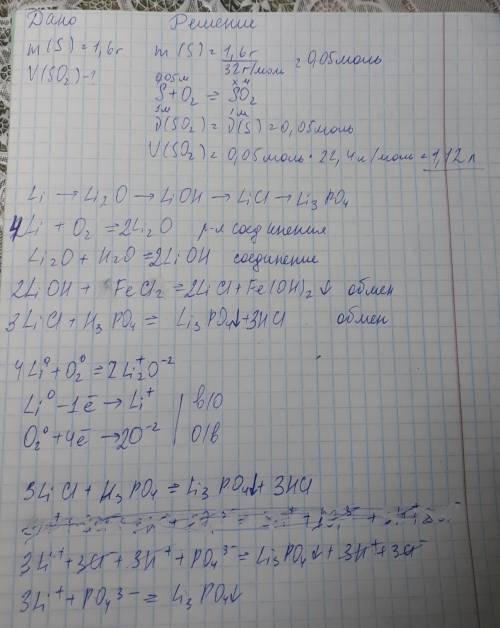 Дано Решение
m(S)=1,6г m(S)=1,6г/32г/моль=0,05моль
V(SO₂)-?
0,05м х м
S+O₂ = SO₂
1м 1м
ν(SO₂)=ν(S)=0,05моль
V(SO₂)=0,05моль·22,4л/моль=1,12л
Li → Li₂O → LiOH → LiCl → Li₃PO₄
4Li + O₂ =2Li₂O р-я соединения
Li₂O + H₂O =2LiOH соединение
2LiOH + FeCl₂ =2LiCl+Fe(OH)₂↓ обмен
3LiCl+H₃PO₄ = Li₃PO₄↓+3HCl обмен
4Li⁰+O₂⁰=2Li₂⁺O⁻²
Li⁰-1ē→Li⁺ | в/О
O₂⁰+4ē→2O⁻² | О/в
3LiCl+H₃PO₄ = Li₃PO₄↓+3HCl
3Li⁺+3Cl⁻+3H⁺+PO₄³⁻=Li₃PO₄↓+3H⁺+3Cl⁻
3Li⁺+PO₄³⁻= Li₃PO₄↓